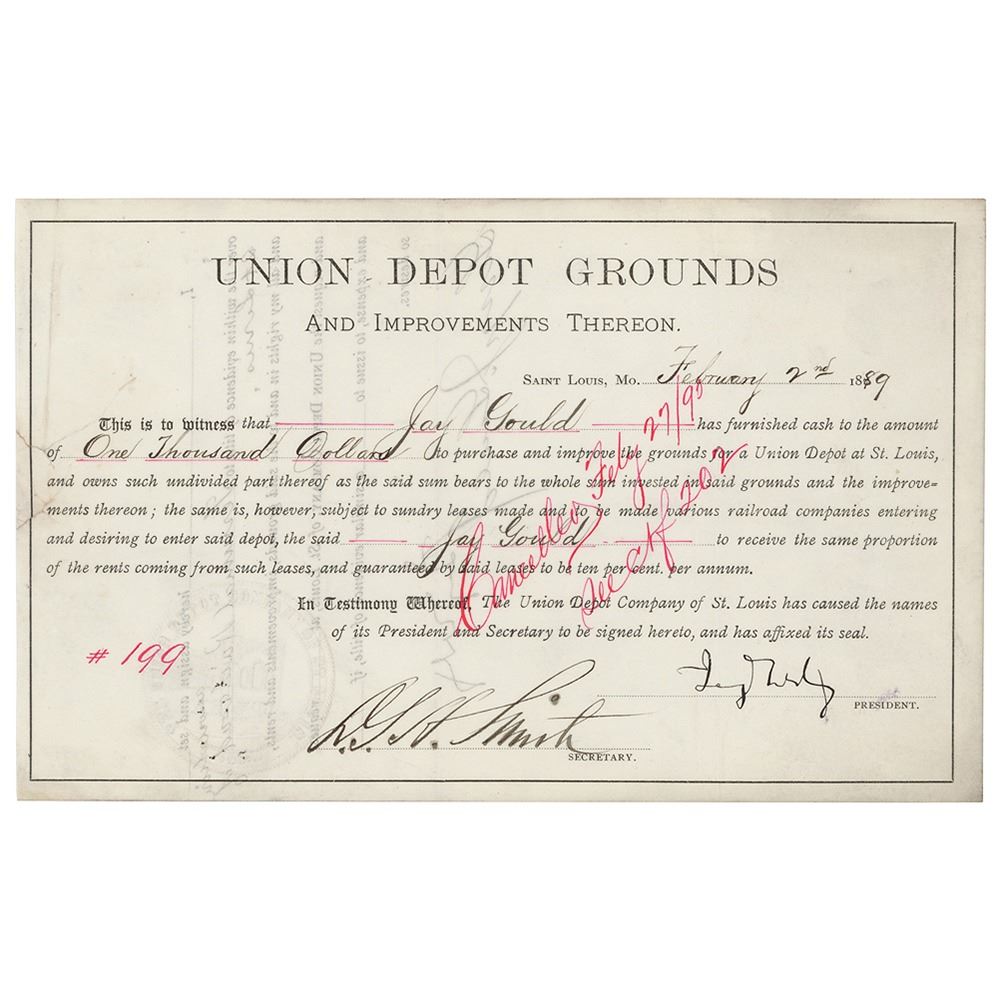 UNION DEPOT GROUNDS
AND IMPROVEMENTS THEREON.
SAINT LOUIS, MO. February 2nd 1889
This is to witness that Jay Gould has furnished cash to the amount
of One Thousand Dollars to purchase and improve the grounds for a Union Depot at St. Louis,
and owns such undivided part thereof as the said sum bears to the whole sum invested in said grounds and the improve-
ments thereon; the same is, however, subject to sundry leases made and to be made various railroad companies entering
and desiring to enter said depot, the said Jay Gould to receive the same proportion
of the rents coming from such leases, and guaranteed by said leases to be ten per cent. per annum.
Cancelled Feby 27/90
See Ctf 202
In Testimony Whereof, The Union Depot Company of St. Louis has caused the names
of its President and Secretary to be signed hereto, and has affixed its seal.
# 199
PRESIDENT.
Smith
SECRETARY.